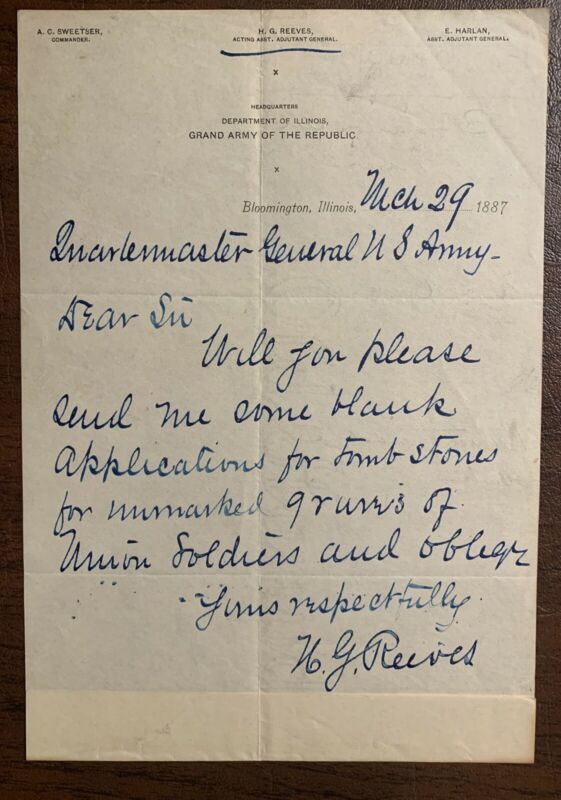 A. C. SWEETSER, H. G. REEVES, E. HARLAN,
COMMANDER. ACTING ASST. ADJUTANT GENERAL. ASST. ADJUTANT GENERAL.
x
HEADQUARTERS
DEPARTMENT OF ILLINOIS,
GRAND ARMY OF THE REPUBLIC.
x
Bloomington, Illinois, Mch 29 1887
Quartermaster General U S Army-
Dear Sir
Will you please
send me some blank
applications for Tomb stones
for unmarked graves of
Union Soldiers and oblige
Yours respectfully
H. G. Reeves